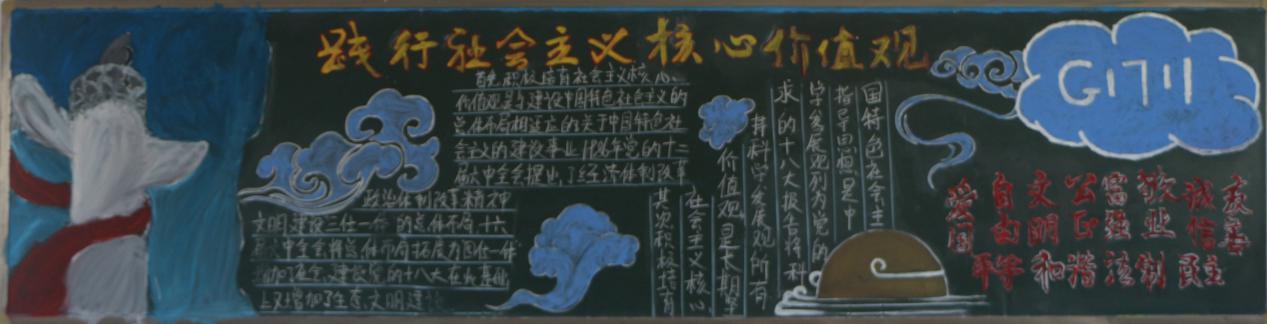 践行社会主义核心价值观
首先,积极培育社会主义核心
价值观是与建设中国特色社会主义的
总体布局相适应的关于中国特色社
会主义的建设事业,1986年党的十二
届六中全会提出了经济体制改革
政治体制改革精神
文明建设三位一体的总体布局十六
届六中全会将总体布局拓展为四位一体
增加了社会建设党的十八大在此基础
上又增加了生态文明建设
其次积极培育
社会主义核心
价值观是长期坚
持科学发展观所有
求的十八大报告将科
学发展观列为党的
指导思想是中
国特色社会主
G1711
爱国
自由 平等
文明 和谐
公正
富强 法制
敬业
诚信 民主
友善